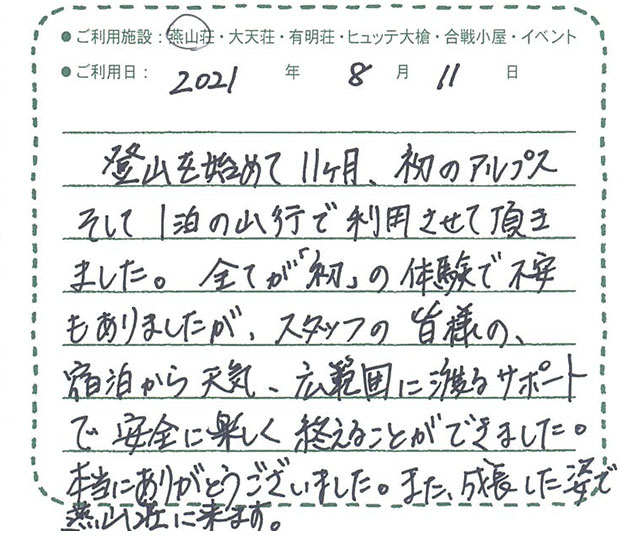 ●ご利用施設：燕山荘・大天荘・有明荘・ヒュッテ大槍・合戦小屋・イベント
●ご利用日： 2021 年 8 月 11 日
登山を始めて11ヶ月、初のアルプス
そして1泊の山行で利用させて頂き
ました。全てが「初」の体験で不安
もありましたが、スタッフの皆様の、
宿泊から天気、広範囲に渡るサポート
で安全に楽しく終えることができました。
本当にありがとうございました。また、成長した姿で
燕山荘に来ます。